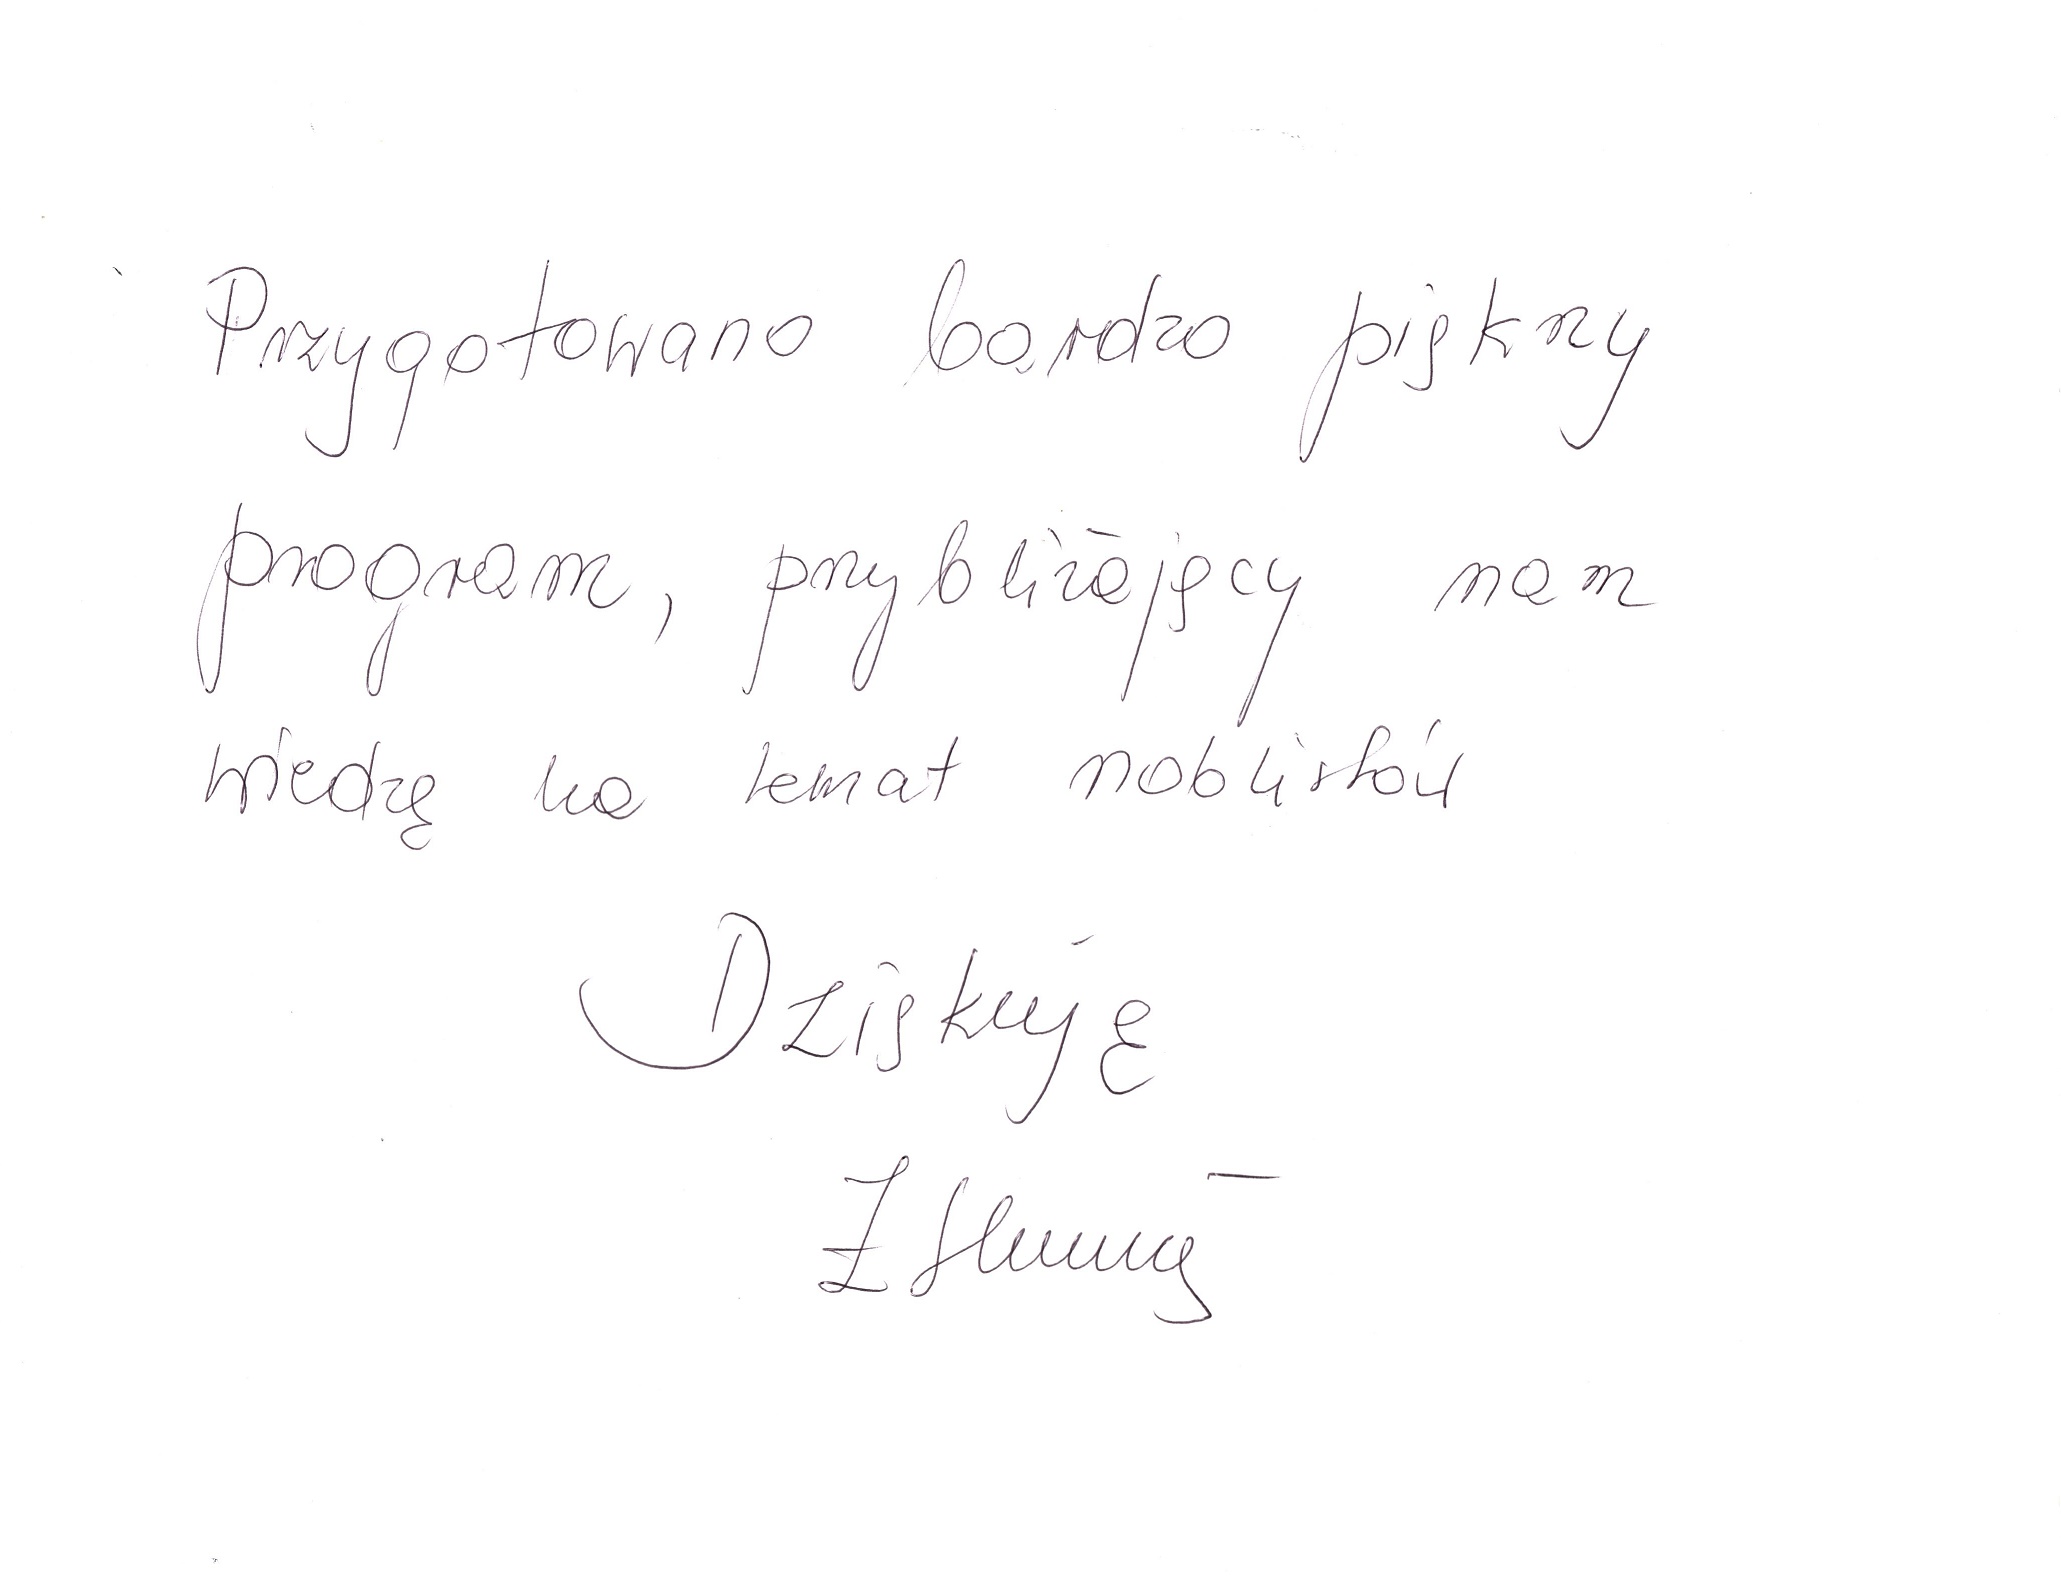 Przygotowano bardzo piękny
program, przybliżający nam
wiedzę na temat noblistów
Dziękuję